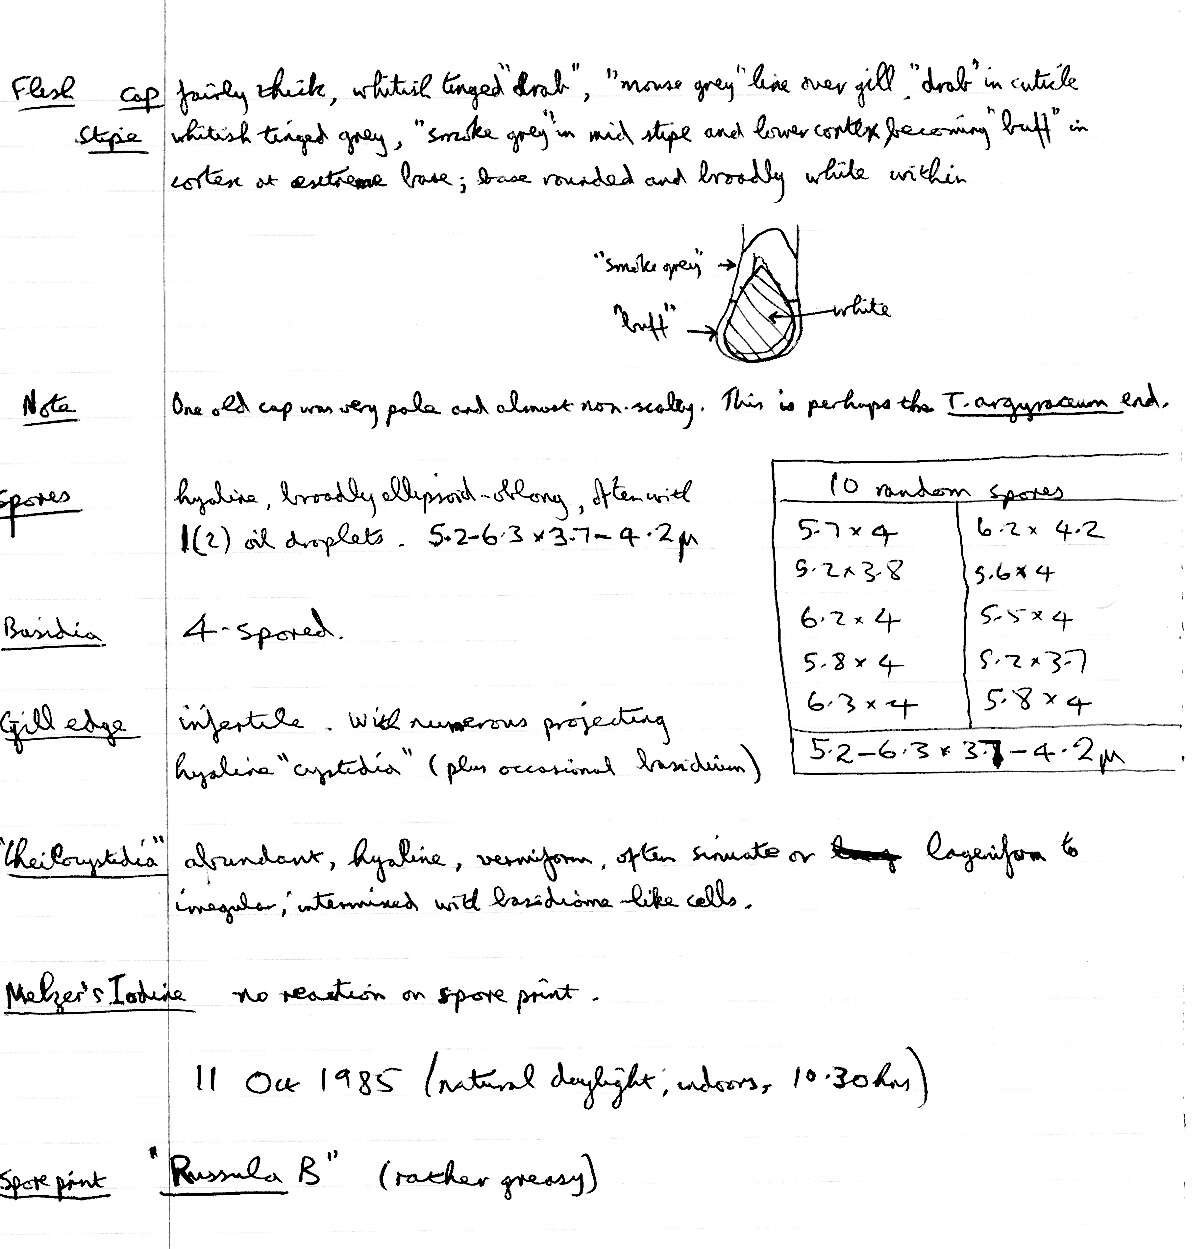 Flesh cap fairly thick, whitish tinged "drab", "mouse grey" line over gill. "drab" in cuticle
Stipe whitish tinged grey, "smoke grey" in mid stipe and lower cortex becoming "buff" in
cortex at extreme base; base rounded and broadly white within
"smoke grey"
"buff"
white
Note One old cap was very pale and almost non-scaley. This is perhaps the T. argyraceum end.
Spores hyaline, broadly ellipsoid-oblong, often with
1(2) oil droplets. 5.2-6.3 x 3.7-4.2 μ
10 random spores
5.7 x 4 6.2 x 4.2
5.2 x 3.8 5.6 x 4
6.2 x 4 5.5 x 4
5.8 x 4 5.2 x 3.7
6.3 x 4 5.8 x 4
5.2-6.3 x 3.7-4.2 μ
Basidia 4-spored.
Gill edge infertile. With numerous projecting
hyaline "cystidia" (plus occasional basidium)
"Cheilocystidia" abundant, hyaline, vermiform, often sinuate or lageniform to
irregular, intermixed with basidiome-like cells.
Melzer's Iodine no reaction on spore print.
11 Oct 1985 (natural daylight, indoors, 10.30 hrs)
Spore print "Russula B" (rather greasy)